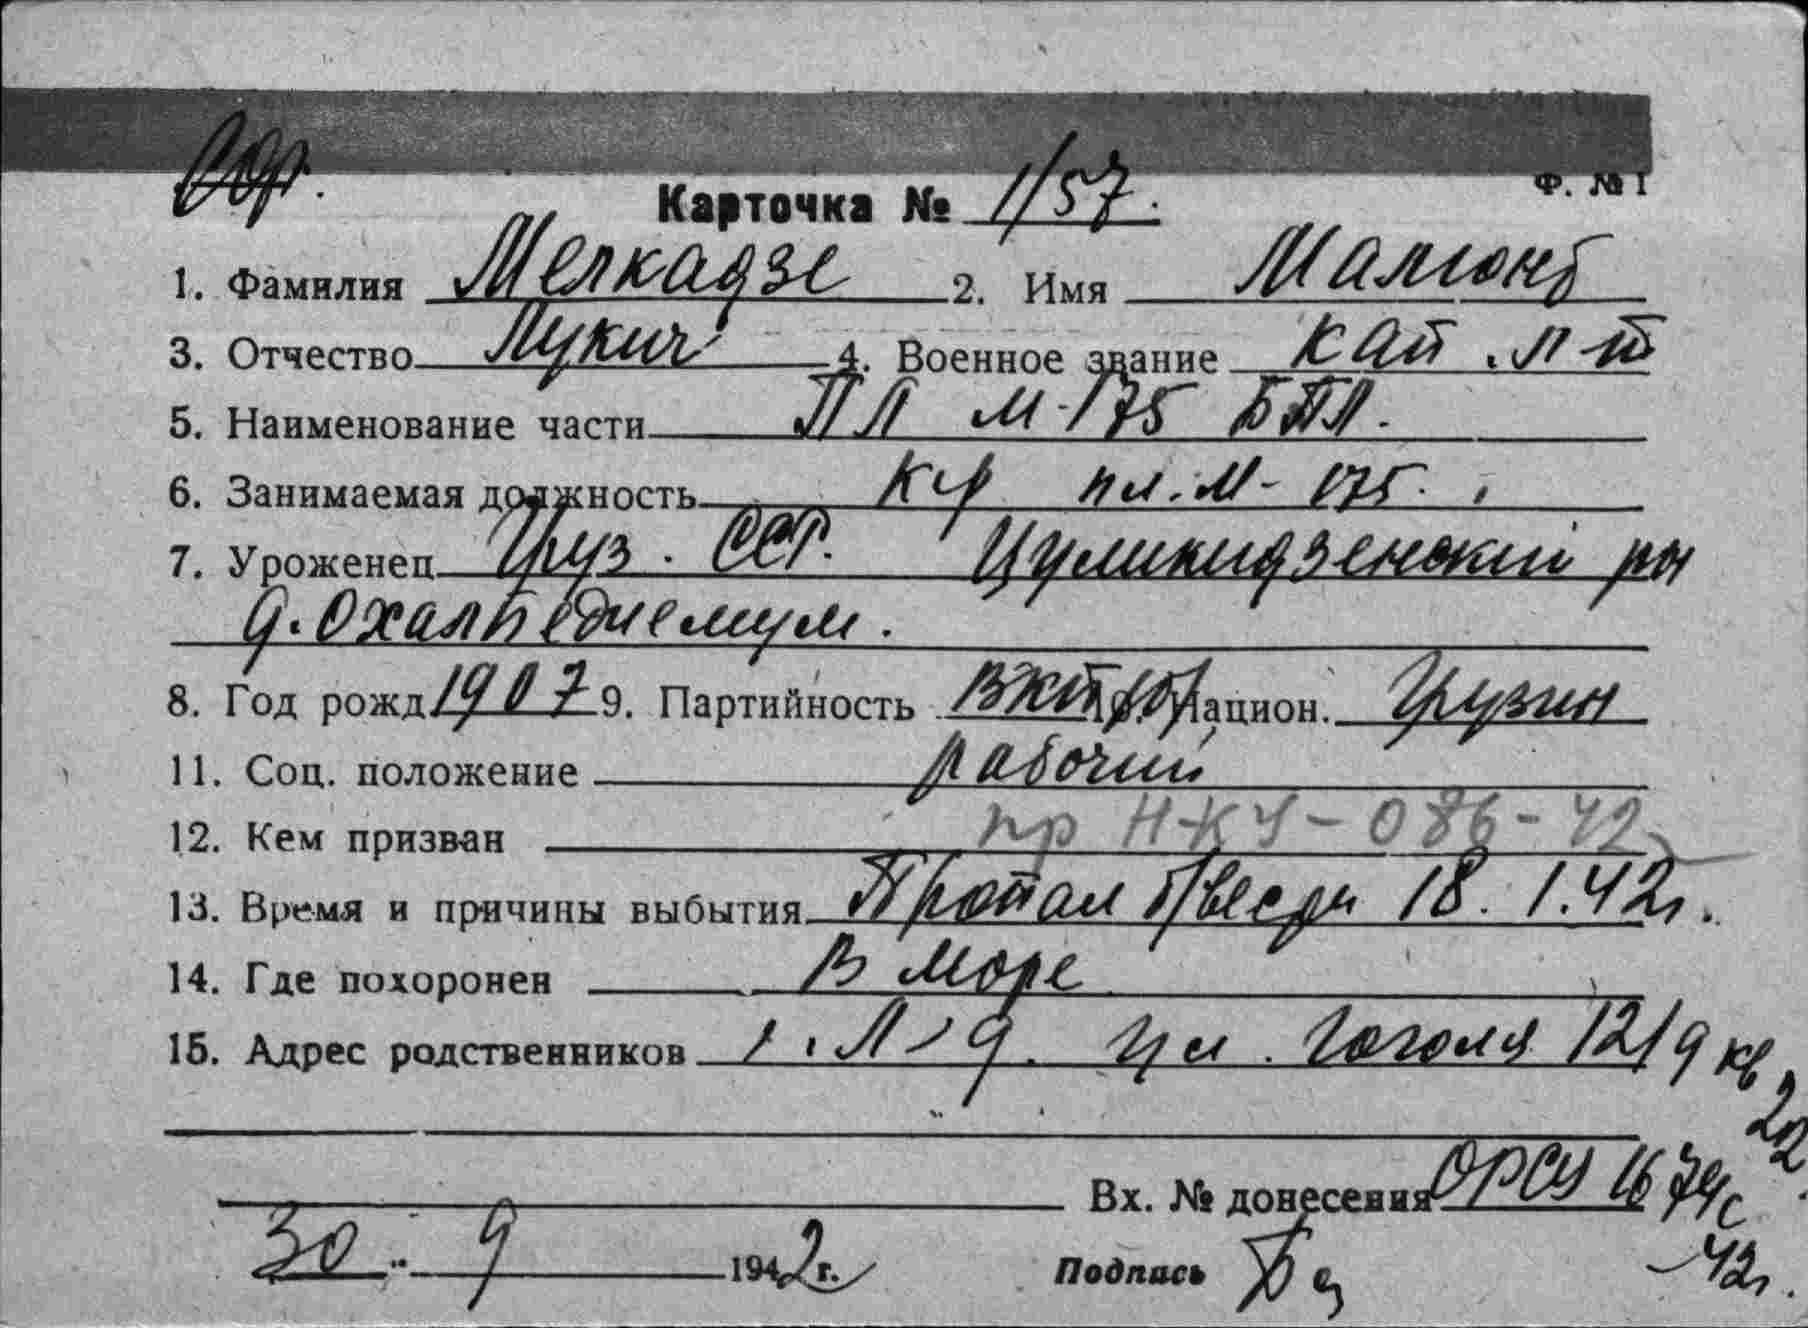 Ф. № 1
Карточка № 1/57.
1. Фамилия Мелкадзе 2. Имя
3. Отчество Лукич 4. Военное звание кап. л-т
5. Наименование части ПЛ М-175 БПЛ.
6. Занимаемая должность к-р пл. М-175.
7. Уроженец Груз. ССР. Цулукидзенский р-н
д.
8. Год рожд. 1907 9. Партийность ВКП(б) Национ. Грузин
11. Соц. положение рабочий
12. Кем призван пр НКУ-086-42
13. Время и причины выбытия Пропал б/вести 18.1.42г.
14. Где похоронен В море
15. Адрес родственников г. Л-д. ул. Гоголя 12/9 кв
20
Вх. № донесения ОРСУ 1674с
-42г.
30. 9 1942г. Подпись